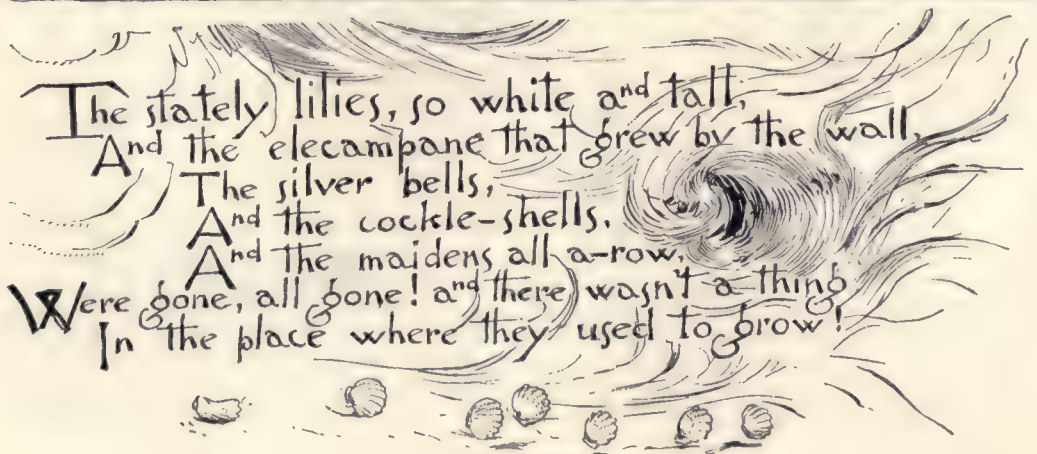 The stately lilies, so white and tall,
And the elecampane that grew by the wall,
The silver bells,
And the cockle-shells,
And the maidens all a-row,
Were gone, all gone! and there wasn't a thing
In the place where they used to grow!